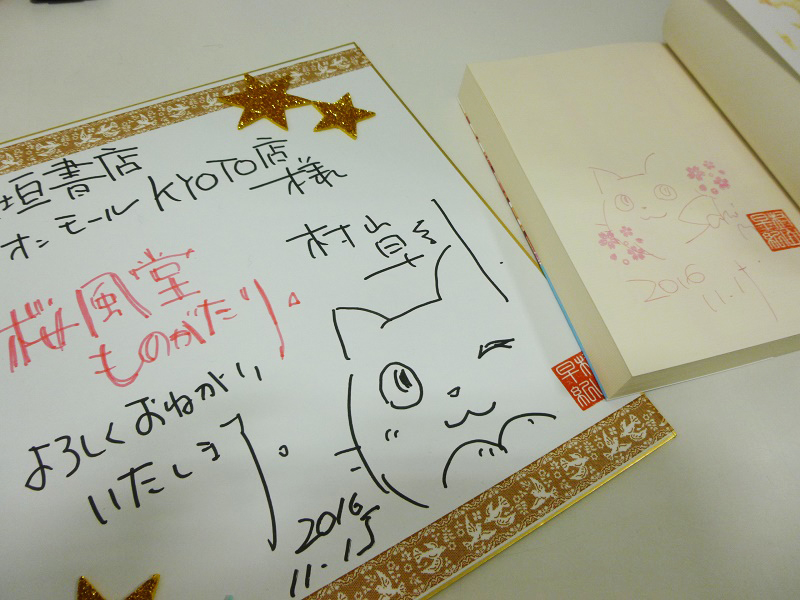 垣書店
オンモールKYOTO店様
村山早紀
桜風堂
ものがたり。
よろしくおねがい
いたします。
2016
11.15
2016
11.15